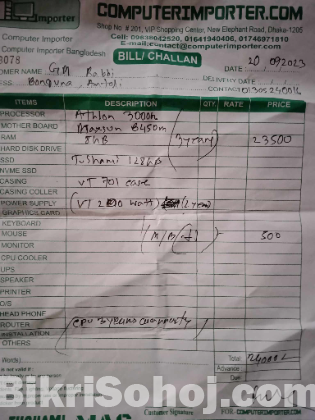 Importer
COMPUTERIMPORTER.COM
Shop No # 201, VIP Shopping Center, New Elephant Road, Dhaka-1205
Computer Importer
Call: 09638042520, 01641940406, 01740971810
E-mail: contact@computerimporter.com
Computer Importer Bangladesh
3078
BILL/ CHALLAN
DATE 20 092023
GM Rabbi
DELIVERY DATE
CONTACT
ITEMS DESCRIPTION QTY. RATE PRICE
PROCESSOR Athlon 3000G
MOTHER BOARD Maxsun B450m
RAM 8GB 3 years 23500
HARD DISK DRIVE
SSD 128GB
NVME SSD
CASING VT 701 case
CASING COLLER
POWER SUPPLY VT 200 watt
GRAPHICS CARD
KEYBOARD
MOUSE 500
MONITOR
CPU COOLER
UPS
SPEAKER
PRINTER
OS
HEAD PHONE
ROUTER CPU 3 years
INSTALLATION
OTHERS
Words) Total 24000
Advance
Due
Customer Signature
FOR COMPUTERIMPORTER
BikriSohoj.com